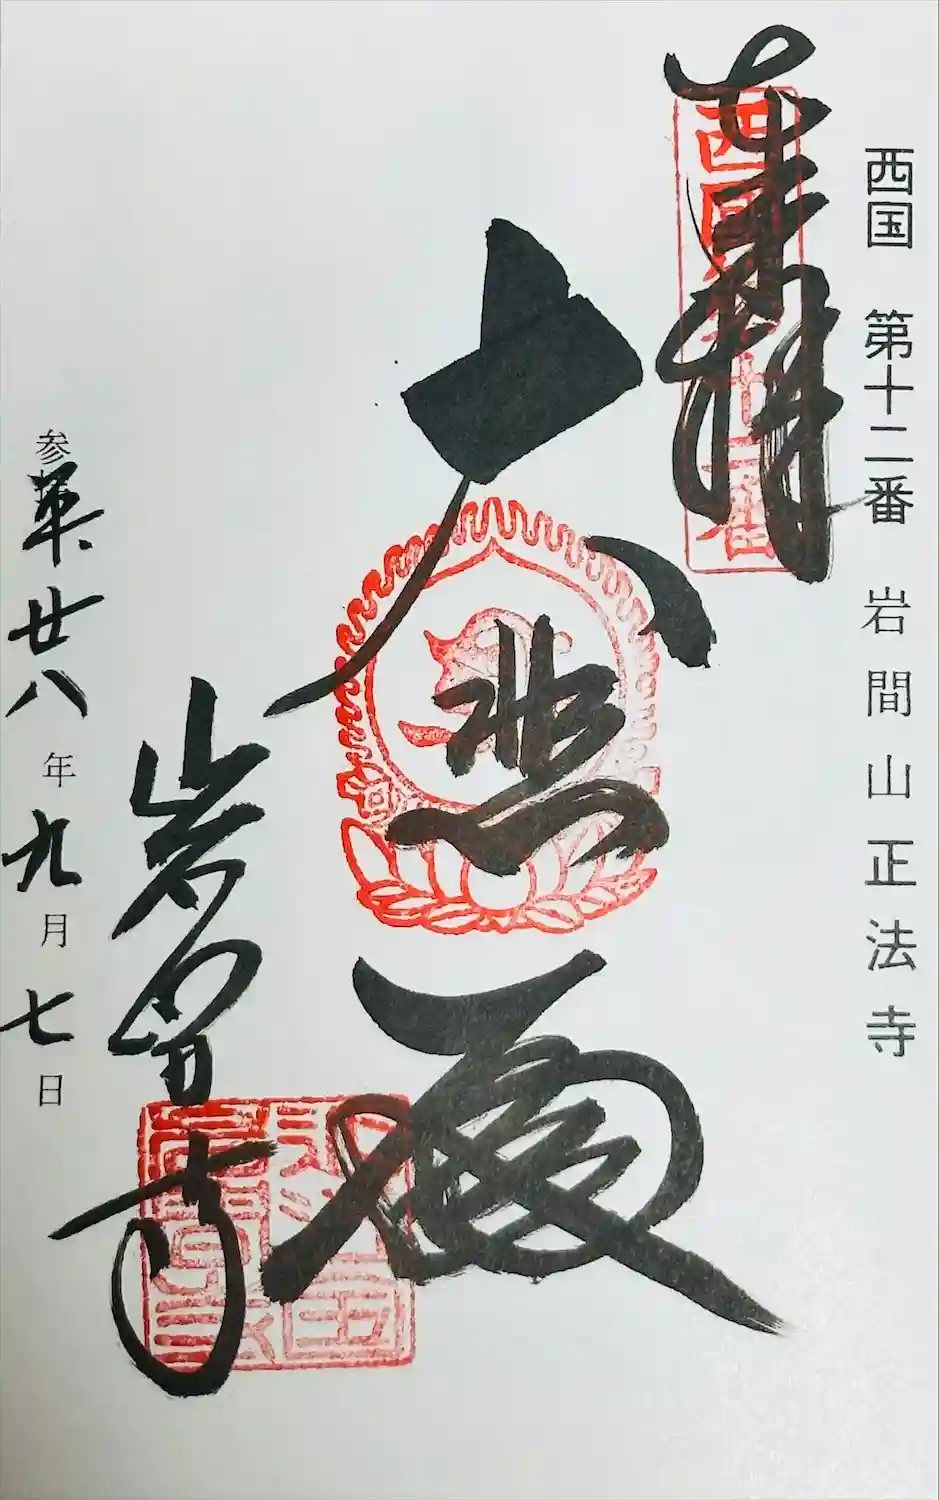 西国 第十二番 岩間山正法寺
奉拝
西國第十二番
大悲殿
岩間寺
廿八年九月七日